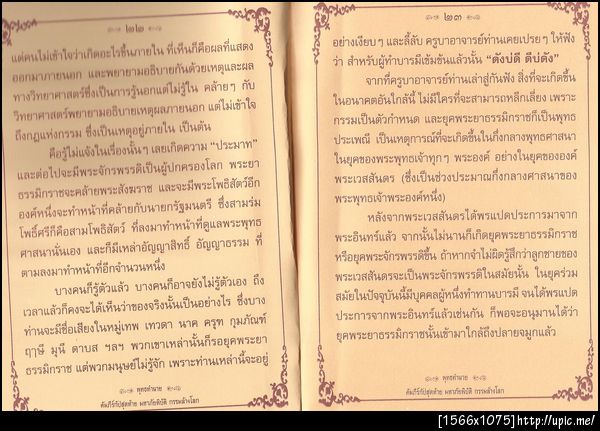 ๒๒
แต่คนไม่เข้าใจว่าเกิดอะไรขึ้นภายใน ที่เห็นก็คือผลที่แสดง
ออกมาภายนอก และพยายามอธิบายกันด้วยเหตุและผล
ทางวิทยาศาสตร์ซึ่งเป็นการรู้นอกแต่ไม่รู้ใน คล้ายๆ กับ
วิทยาศาสตร์พยายามอธิบายเหตุผลภายนอก แต่ไม่เข้าใจ
ถึงกฎแห่งกรรม ซึ่งเป็นเหตุอยู่ภายใน เป็นต้น
คือรู้ไม่แจ้งในเรื่องนั้นๆ เลยเกิดความ “ประมาท”
และต่อไปจะมีพระจักรพรรดิเป็นผู้ปกครองโลก พระยา
ธรรมิกราชจะคล้ายพระสังฆราช และจะมีพระโพธิสัตว์อีก
องค์หนึ่งจะทำหน้าที่คล้ายกับนายกรัฐมนตรี ซึ่งสามร่ม
โพธิ์ศรีก็คือสามโพธิสัตว์ ที่ลงมาทำหน้าที่ดูแลพระพุทธ
ศาสนานั่นเอง และก็มีเหล่าอัญญาสิทธิ์ อัญญาธรรม ที่
ตามลงมาทำหน้าที่อีกจำนวนหนึ่ง
บางคนก็รู้ตัวแล้ว บางคนก็อาจยังไม่รู้ตัวเอง ถึง
เวลาแล้วก็คงจะได้เห็นว่าของจริงนั้นเป็นอย่างไร ซึ่งบาง
ท่านจะมีชื่อเสียงในหมู่เทพ เทวดา นาค ครุฑ กุมภัณฑ์
ฤๅษี มุนี ดาบส ฯลฯ พวกเขาเหล่านั้นก็รอยุคพระยา
ธรรมิกราช แต่พวกมนุษย์ไม่รู้จัก เพราะท่านเหล่านี้จะอยู่
พุทธทำนาย
คัมภีร์กัปสุดท้าย มหาภัยพิบัติ กรรมล้างโลก
๒๓
อย่างเงียบๆ และลี้ลับ ครูบาอาจารย์ท่านเคยเปรยๆ ให้ฟัง
ว่า สำหรับผู้ทำบารมีเข้มข้นแล้วนั้น “ดังบ่ดี ดีบ่ดัง”
จากที่ครูบาอาจารย์ท่านเล่าสู่กันฟัง สิ่งที่จะเกิดขึ้น
ในอนาคตอันใกล้นี้ ไม่มีใครที่จะสามารถหลีกเลี่ยง เพราะ
กรรมเป็นตัวกำหนด และยุคพระยาธรรมิกราชก็เป็นพุทธ
ประเพณี เป็นเหตุการณ์ที่จะเกิดขึ้นในกึ่งกลางพุทธศาสนา
ในยุคของพระพุทธเจ้าทุกๆ พระองค์ อย่างในยุคขององค์
พระเวสสันดร (ซึ่งเป็นช่วงประมาณกึ่งกลางศาสนาของ
พระพุทธเจ้าพระองค์หนึ่ง)
หลังจากพระเวสสันดรได้พรแปดประการมาจาก
พระอินทร์แล้ว จากนั้นไม่นานก็เกิดยุคพระยาธรรมิกราช
หรือยุคพระจักรพรรดิขึ้น ถ้าหากจำไม่ผิดรู้สึกว่าลูกชายของ
พระเวสสันดรจะเป็นพระจักรพรรดิในสมัยนั้น ในยุคร่วม
สมัยในปัจจุบันนี้มีบุคคลผู้หนึ่งทำทานบารมี จนได้พรแปด
ประการจากพระอินทร์แล้วเช่นกัน ก็พอจะอนุมานได้ว่า
ยุคพระยาธรรมิกราชนั้นเข้ามาใกล้ถึงปลายจมูกแล้ว
พุทธทำนาย
คัมภีร์กัปสุดท้าย มหาภัยพิบัติ กรรมล้างโลก
[1566x1075]http://upic.me/